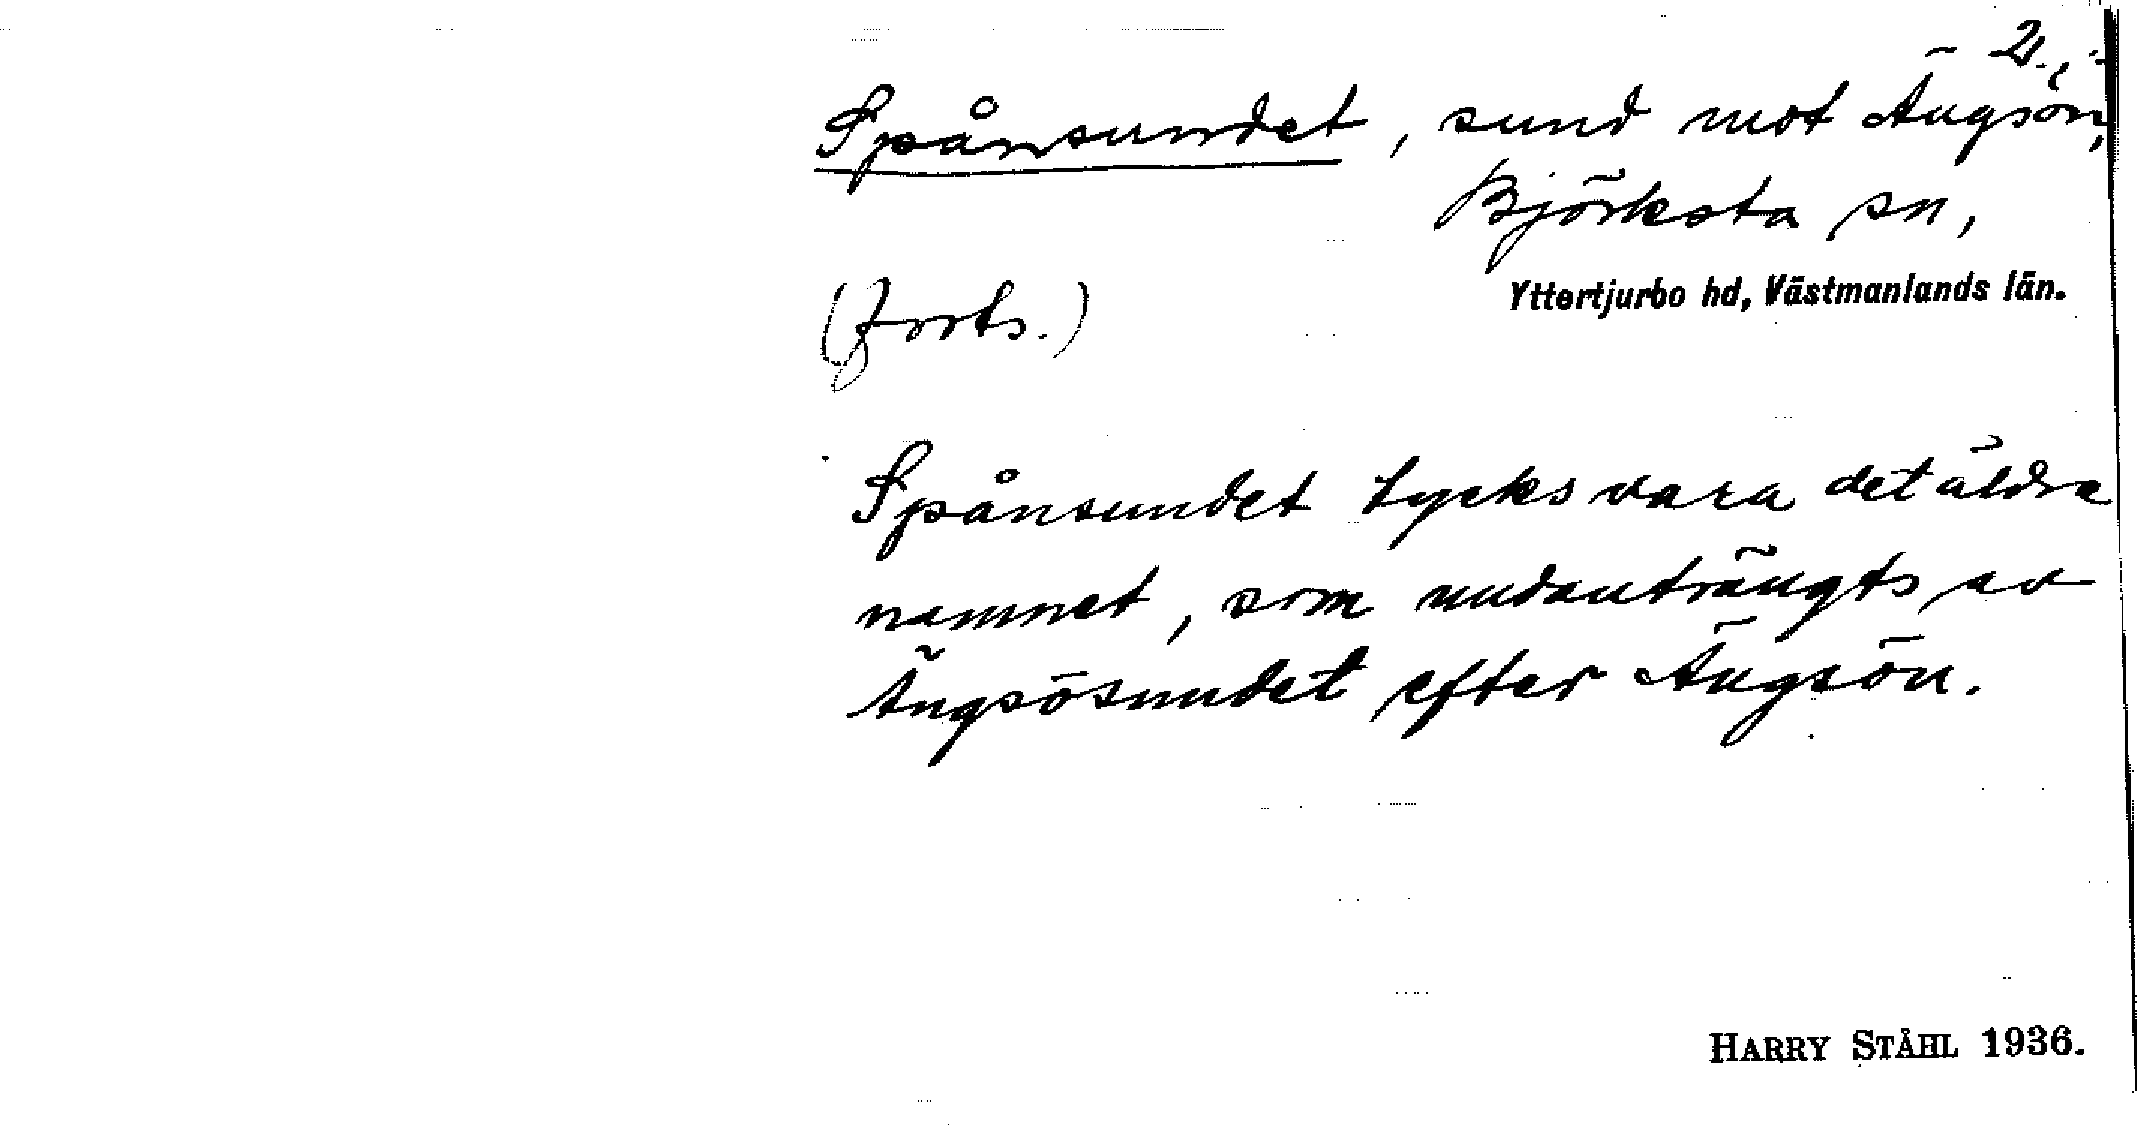 2.
Spånsundet, sund mot Ängsön,
Björksta sn,
Yttertjurbo hd, Västmanlands län.
(Forts.)
Spånsundet tycks vara det äldre
namnet, som undanträngts av
Ängsösundet efter Ängsön.
HARRY STÅHL 1936.